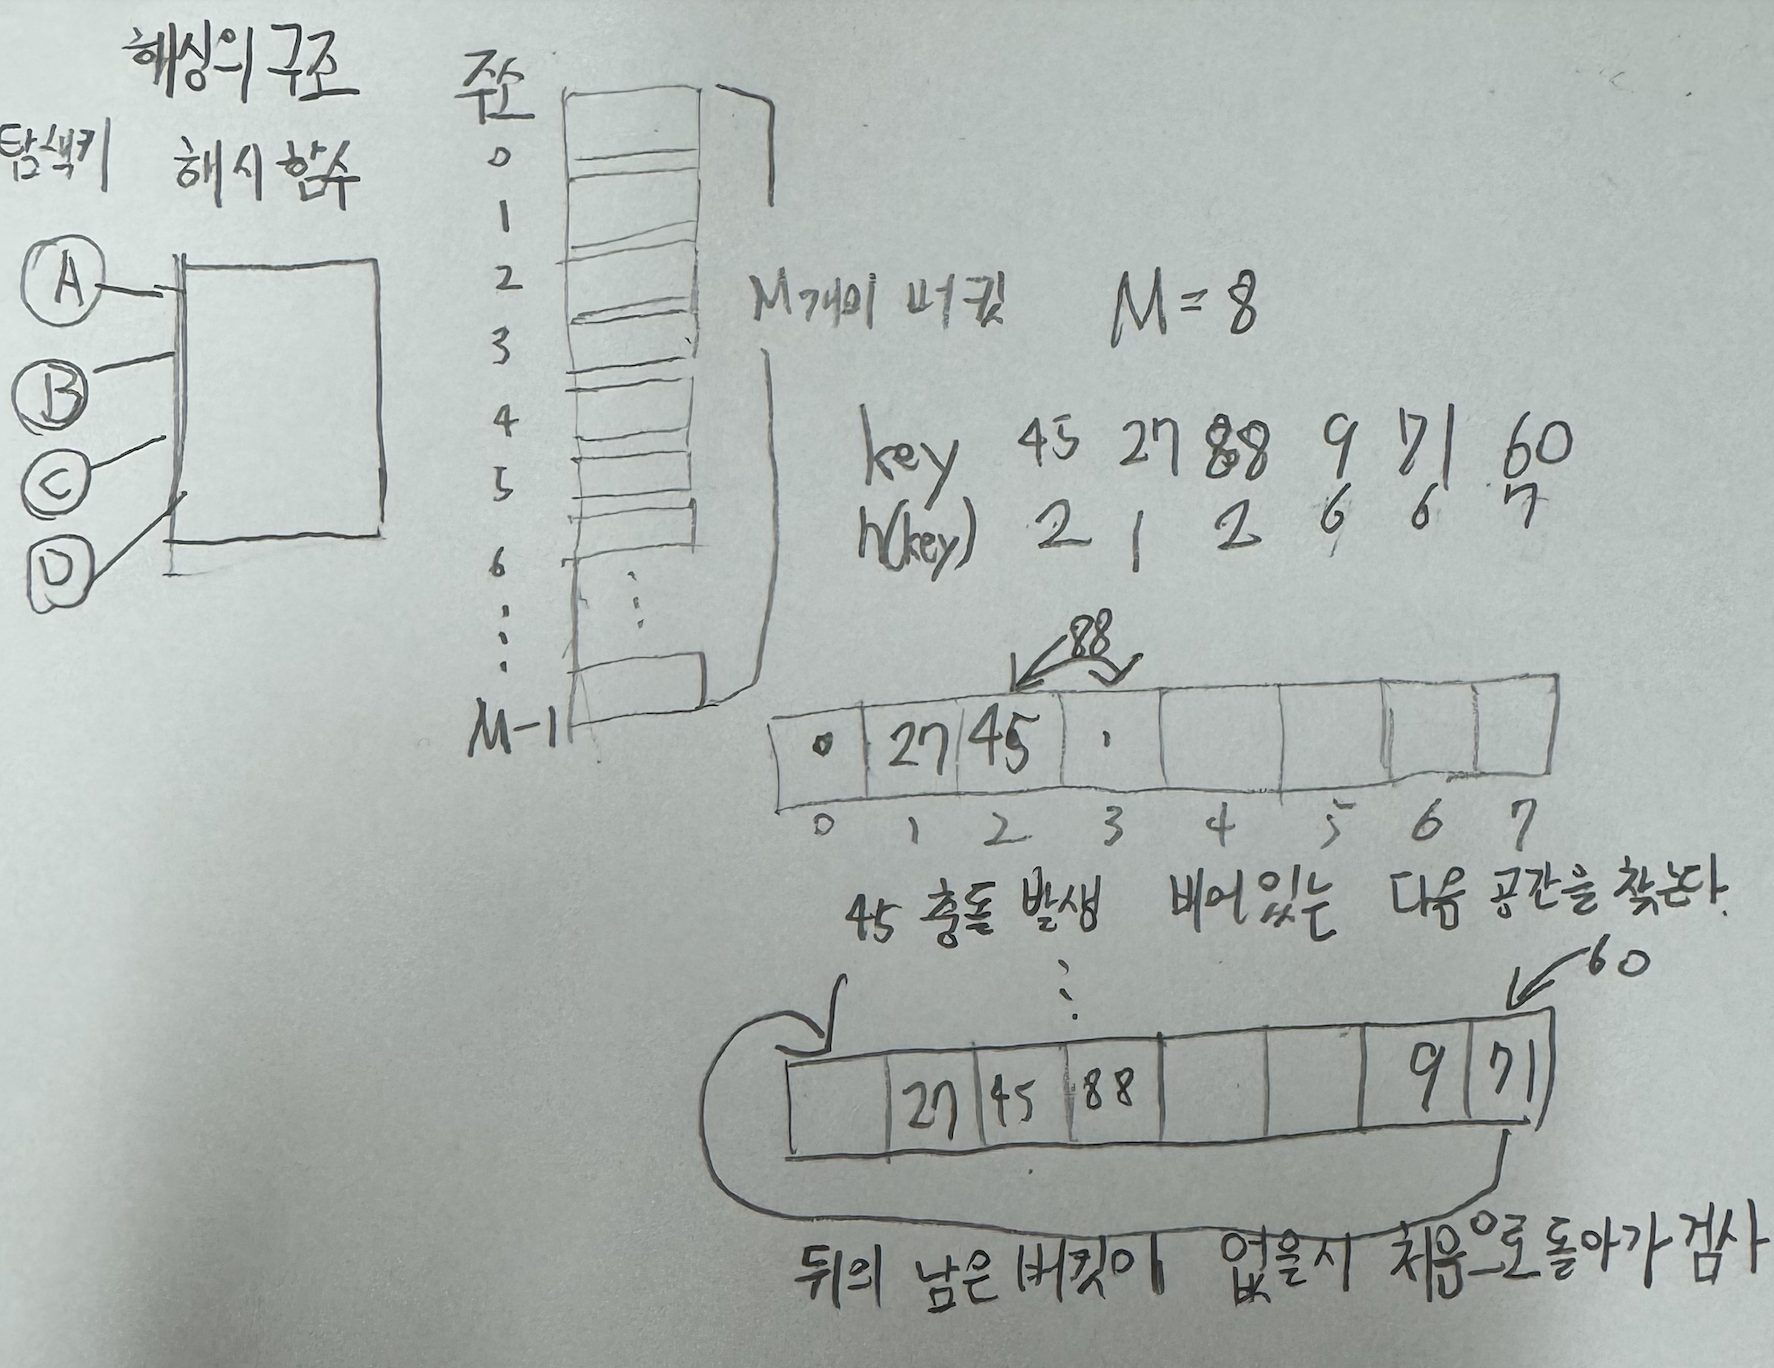 해싱의 구조
탐색키 해시 함수
주소
0
1
2
3
4
5
6
M-1
A
B
C
D
M개의 버킷
M=8
key 45 27 88 9 71 60
h(key) 2 1 2 6 6 7
88
27 45
0 1 2 3 4 5 6 7
45 충돌 발생 비어있는 다음 공간을 찾는다.
60
27 45 88 9 71
뒤의 남은 버킷이 없을시 처음으로 돌아가 검사